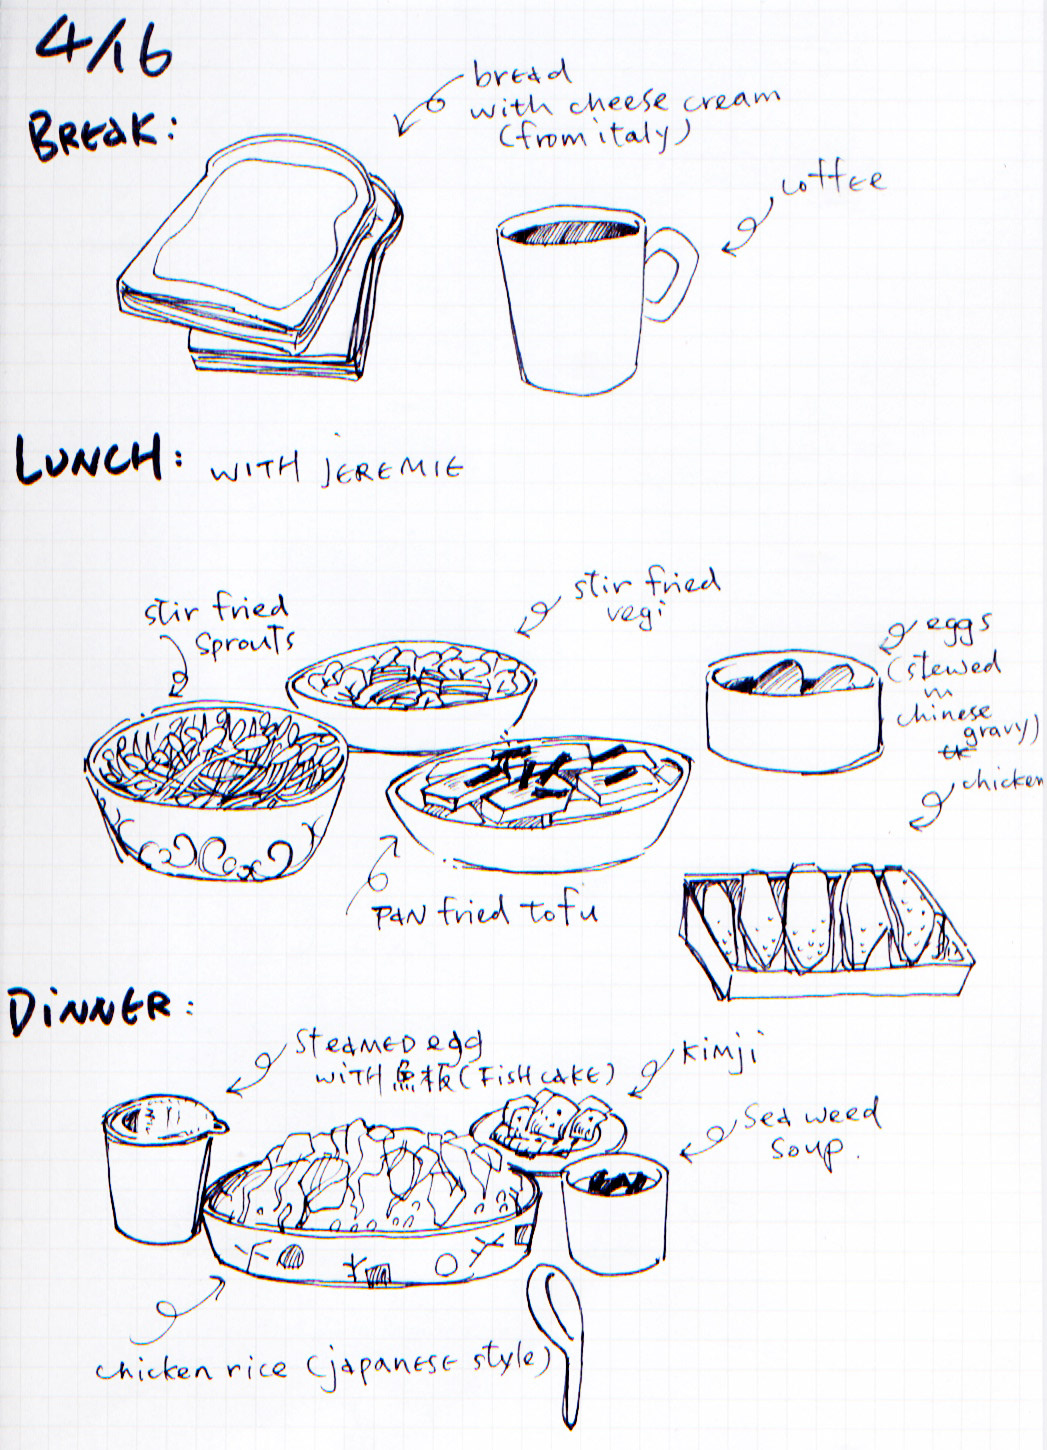 4/16
BREAK:
bread
with cheese cream
(from italy)
coffee
LUNCH: WITH JEREMIE
stir fried
sprouts
stir fried
vegi
eggs
(stewed
in
chinese
gravy)
chicken
PAN fried tofu
DINNER:
STEAMED egg
WITH 魚板(FISH CAKE)
KIMJI
Sea weed
soup.
chicken rice (japanese style)